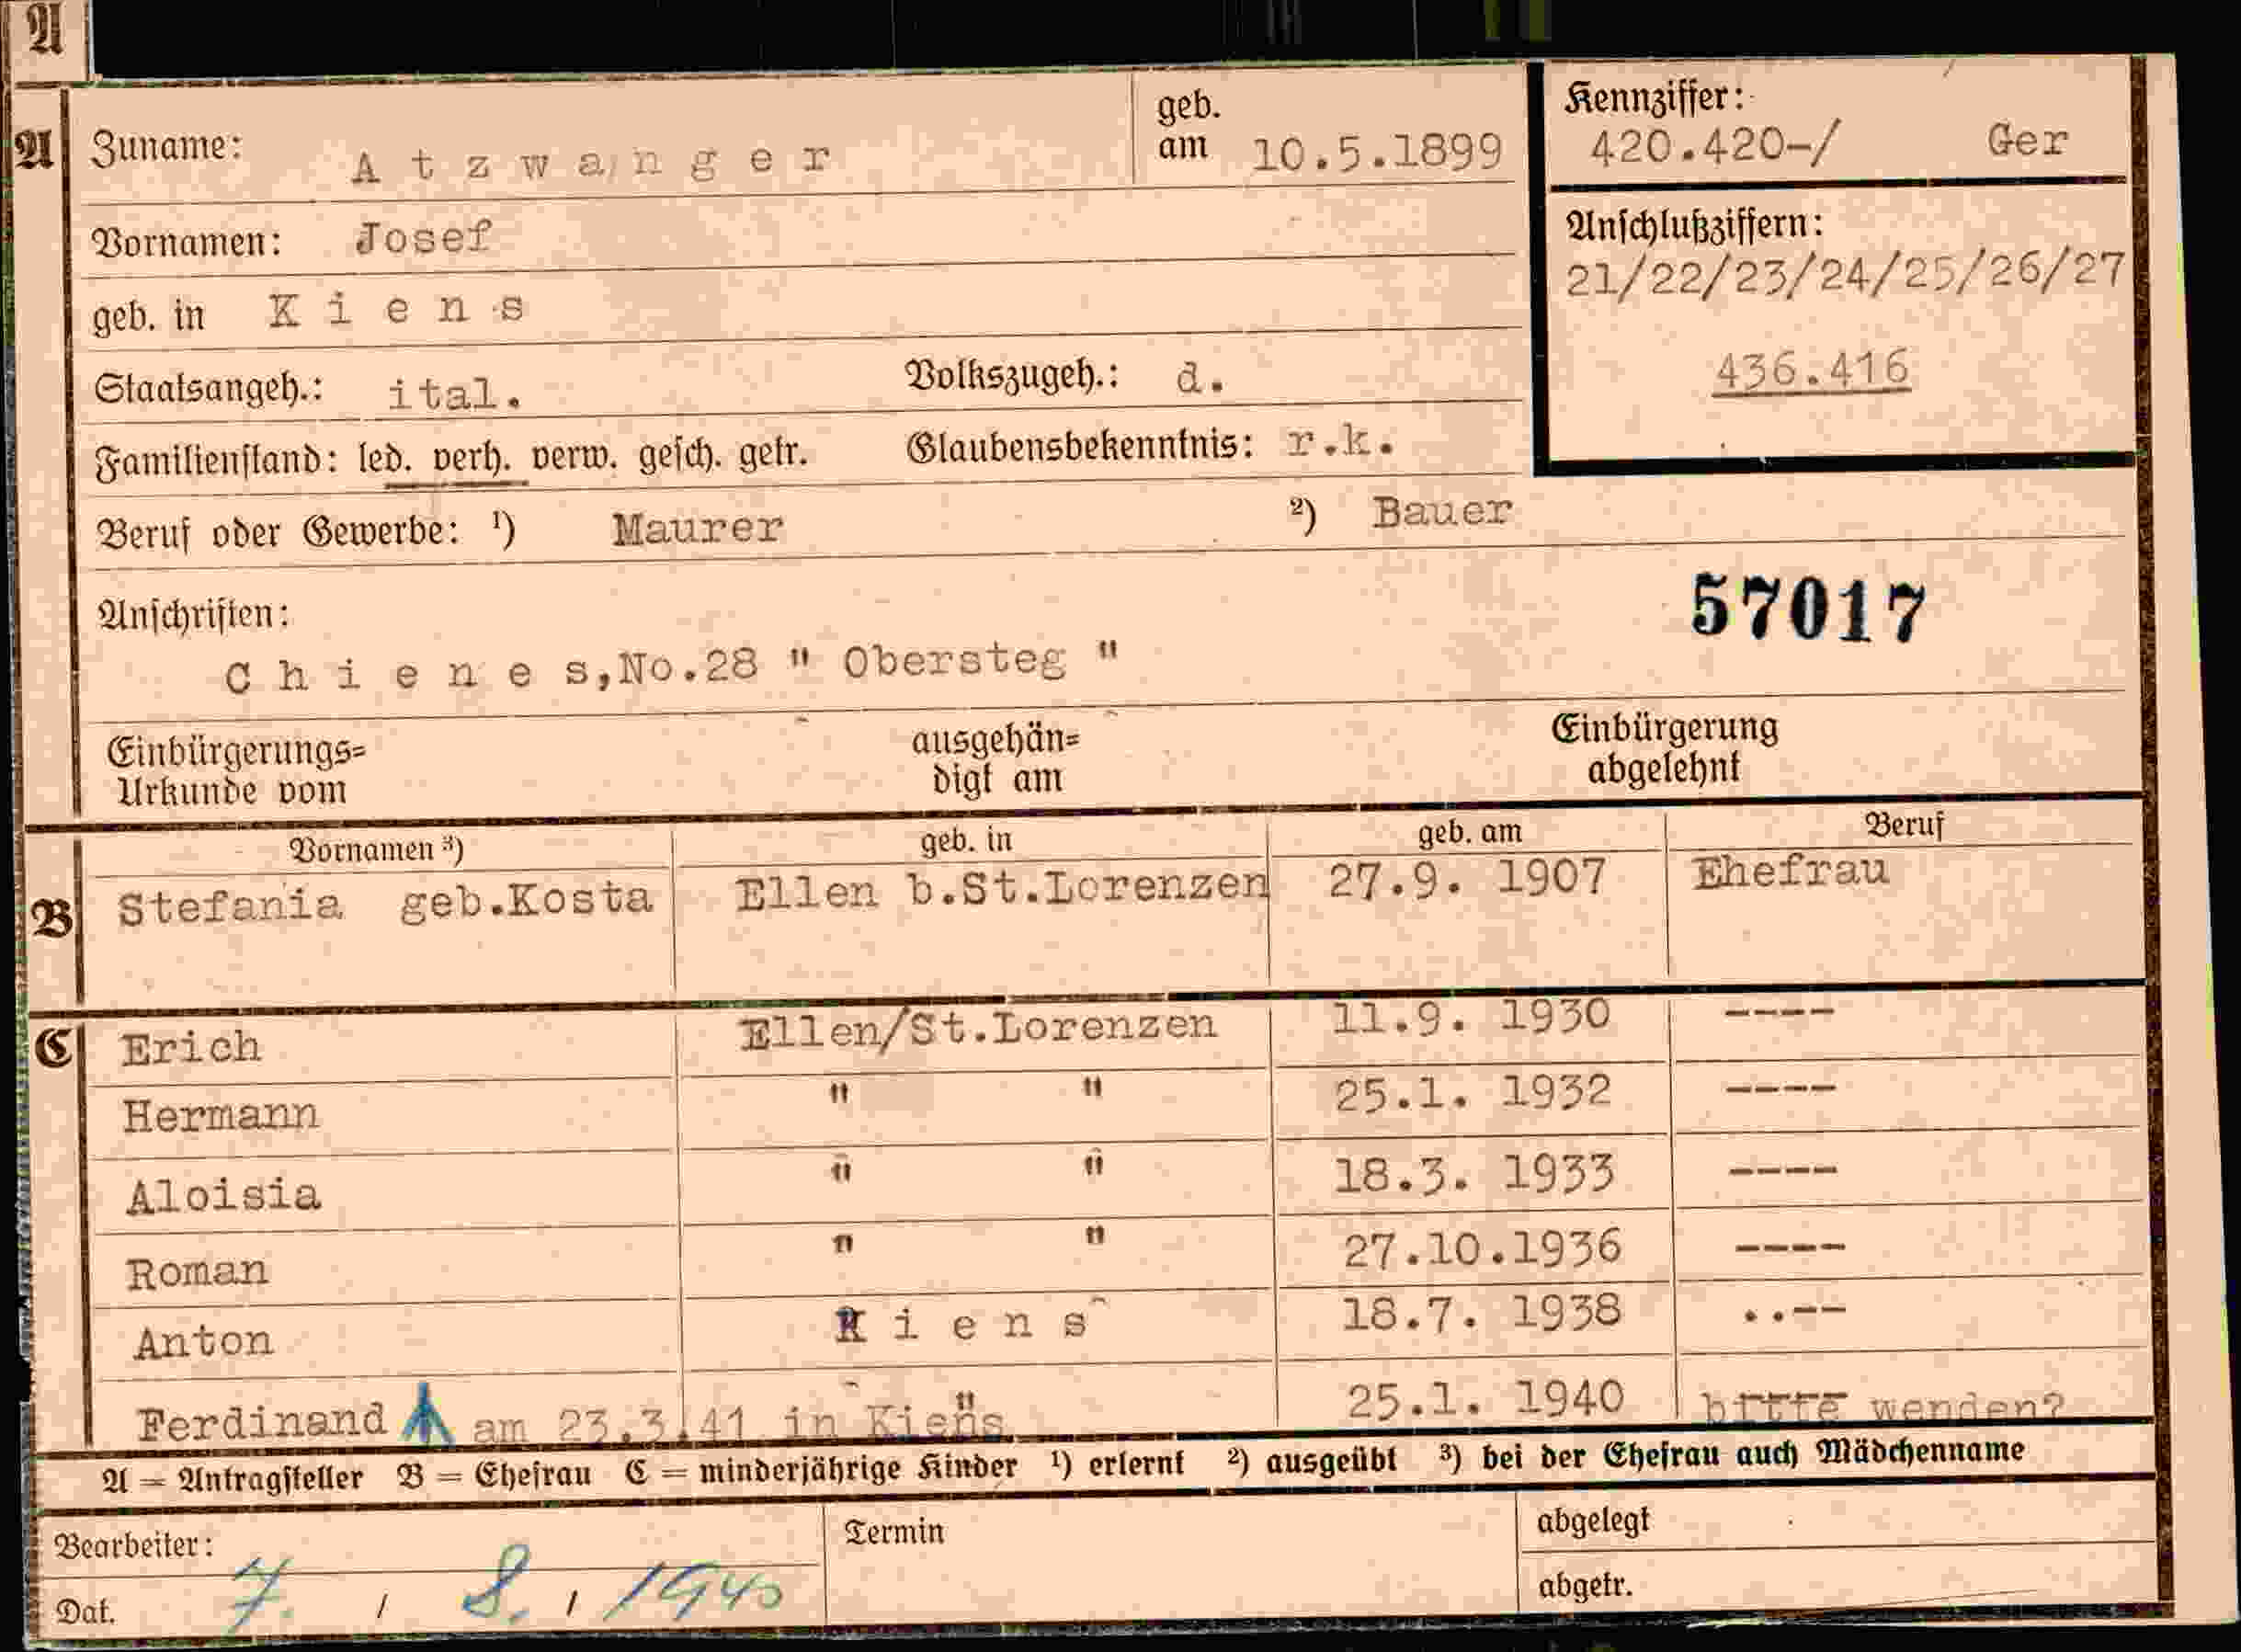 A
A Zuname: Atzwanger geb. am 10.5.1899
Kennziffer: 420.420-/ Ger
Vornamen: Josef
Anschlußziffern:
21/22/23/24/25/26/27
436.416
geb. in Kiens
Staatsangeh.: ital. Volkszugeh.: d.
Familienstand: led. verh. verw. gesch. getr. Glaubensbekenntnis: r.k.
Beruf oder Gewerbe: ¹) Maurer ²) Bauer
57017
Anschriften:
Chienes,No.28 " Obersteg "
Einbürgerungs=
Urkunde vom
ausgehän=
digt am
Einbürgerung
abgelehnt
Vornamen ³) geb. in geb. am Beruf
B Stefania geb.Kosta Ellen b.St.Lorenzen 27.9. 1907 Ehefrau
C Erich Ellen/St.Lorenzen 11.9. 1930 ----
Hermann " " 25.1. 1932 ----
Aloisia " " 18.3. 1933 ----
Roman " " 27.10.1936 ----
Anton Kiens 18.7. 1938 ..--
Ferdinand am 23.3.41 in Kiens " 25.1. 1940 bitte wenden?
A = Antragsteller B = Ehefrau C = minderjährige Kinder ¹) erlernt ²) ausgeübt ³) bei der Ehefrau auch Mädchenname
Bearbeiter:
Dat. 7. / 8. / 1940
Termin
abgelegt
abgetr.